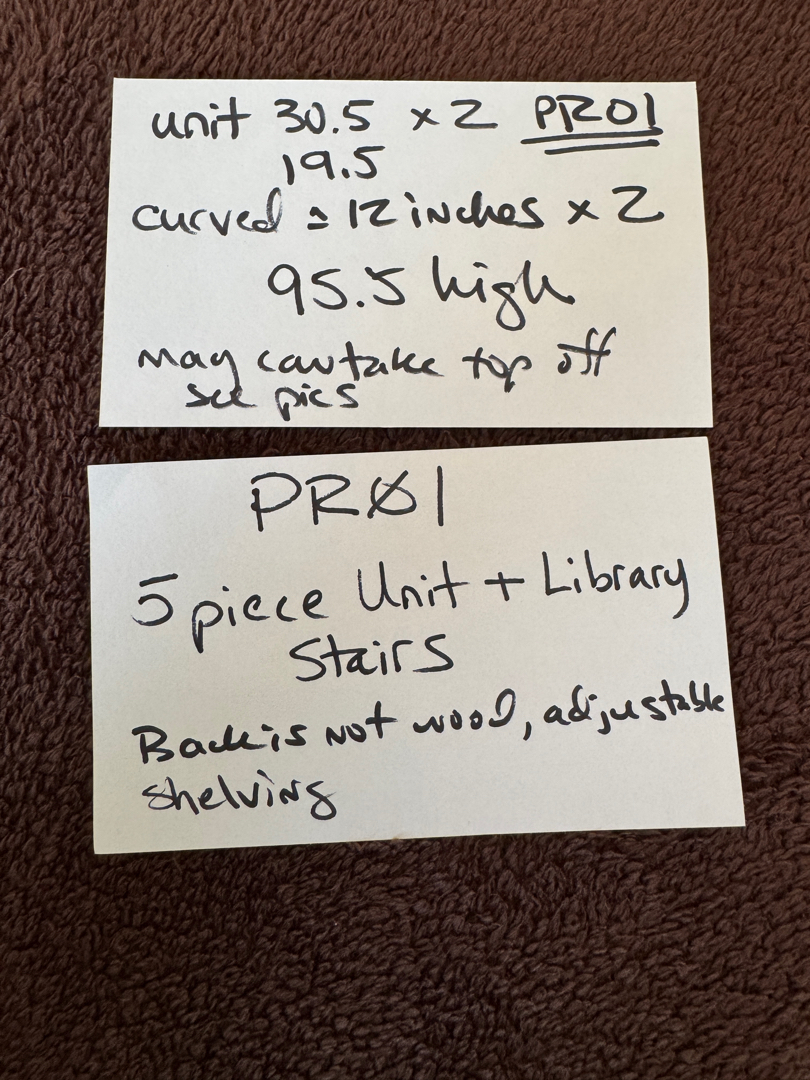 unit 30.5 x 2 PR01
19.5
curved = 12 inches x 2
95.5 high
may can take top off
see pics
PRØ1
5 piece Unit + Library
Stairs
Back is not wood, adjustable
shelving